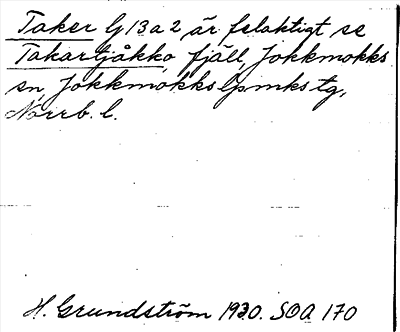 Taker G 13 a 2 är felaktigt se
Takartjåkko, fjäll, Jokkmokks
sn, Jokkmokks lpmks tg,
Norrb. l.
H. Grundström 1930. SOA 170